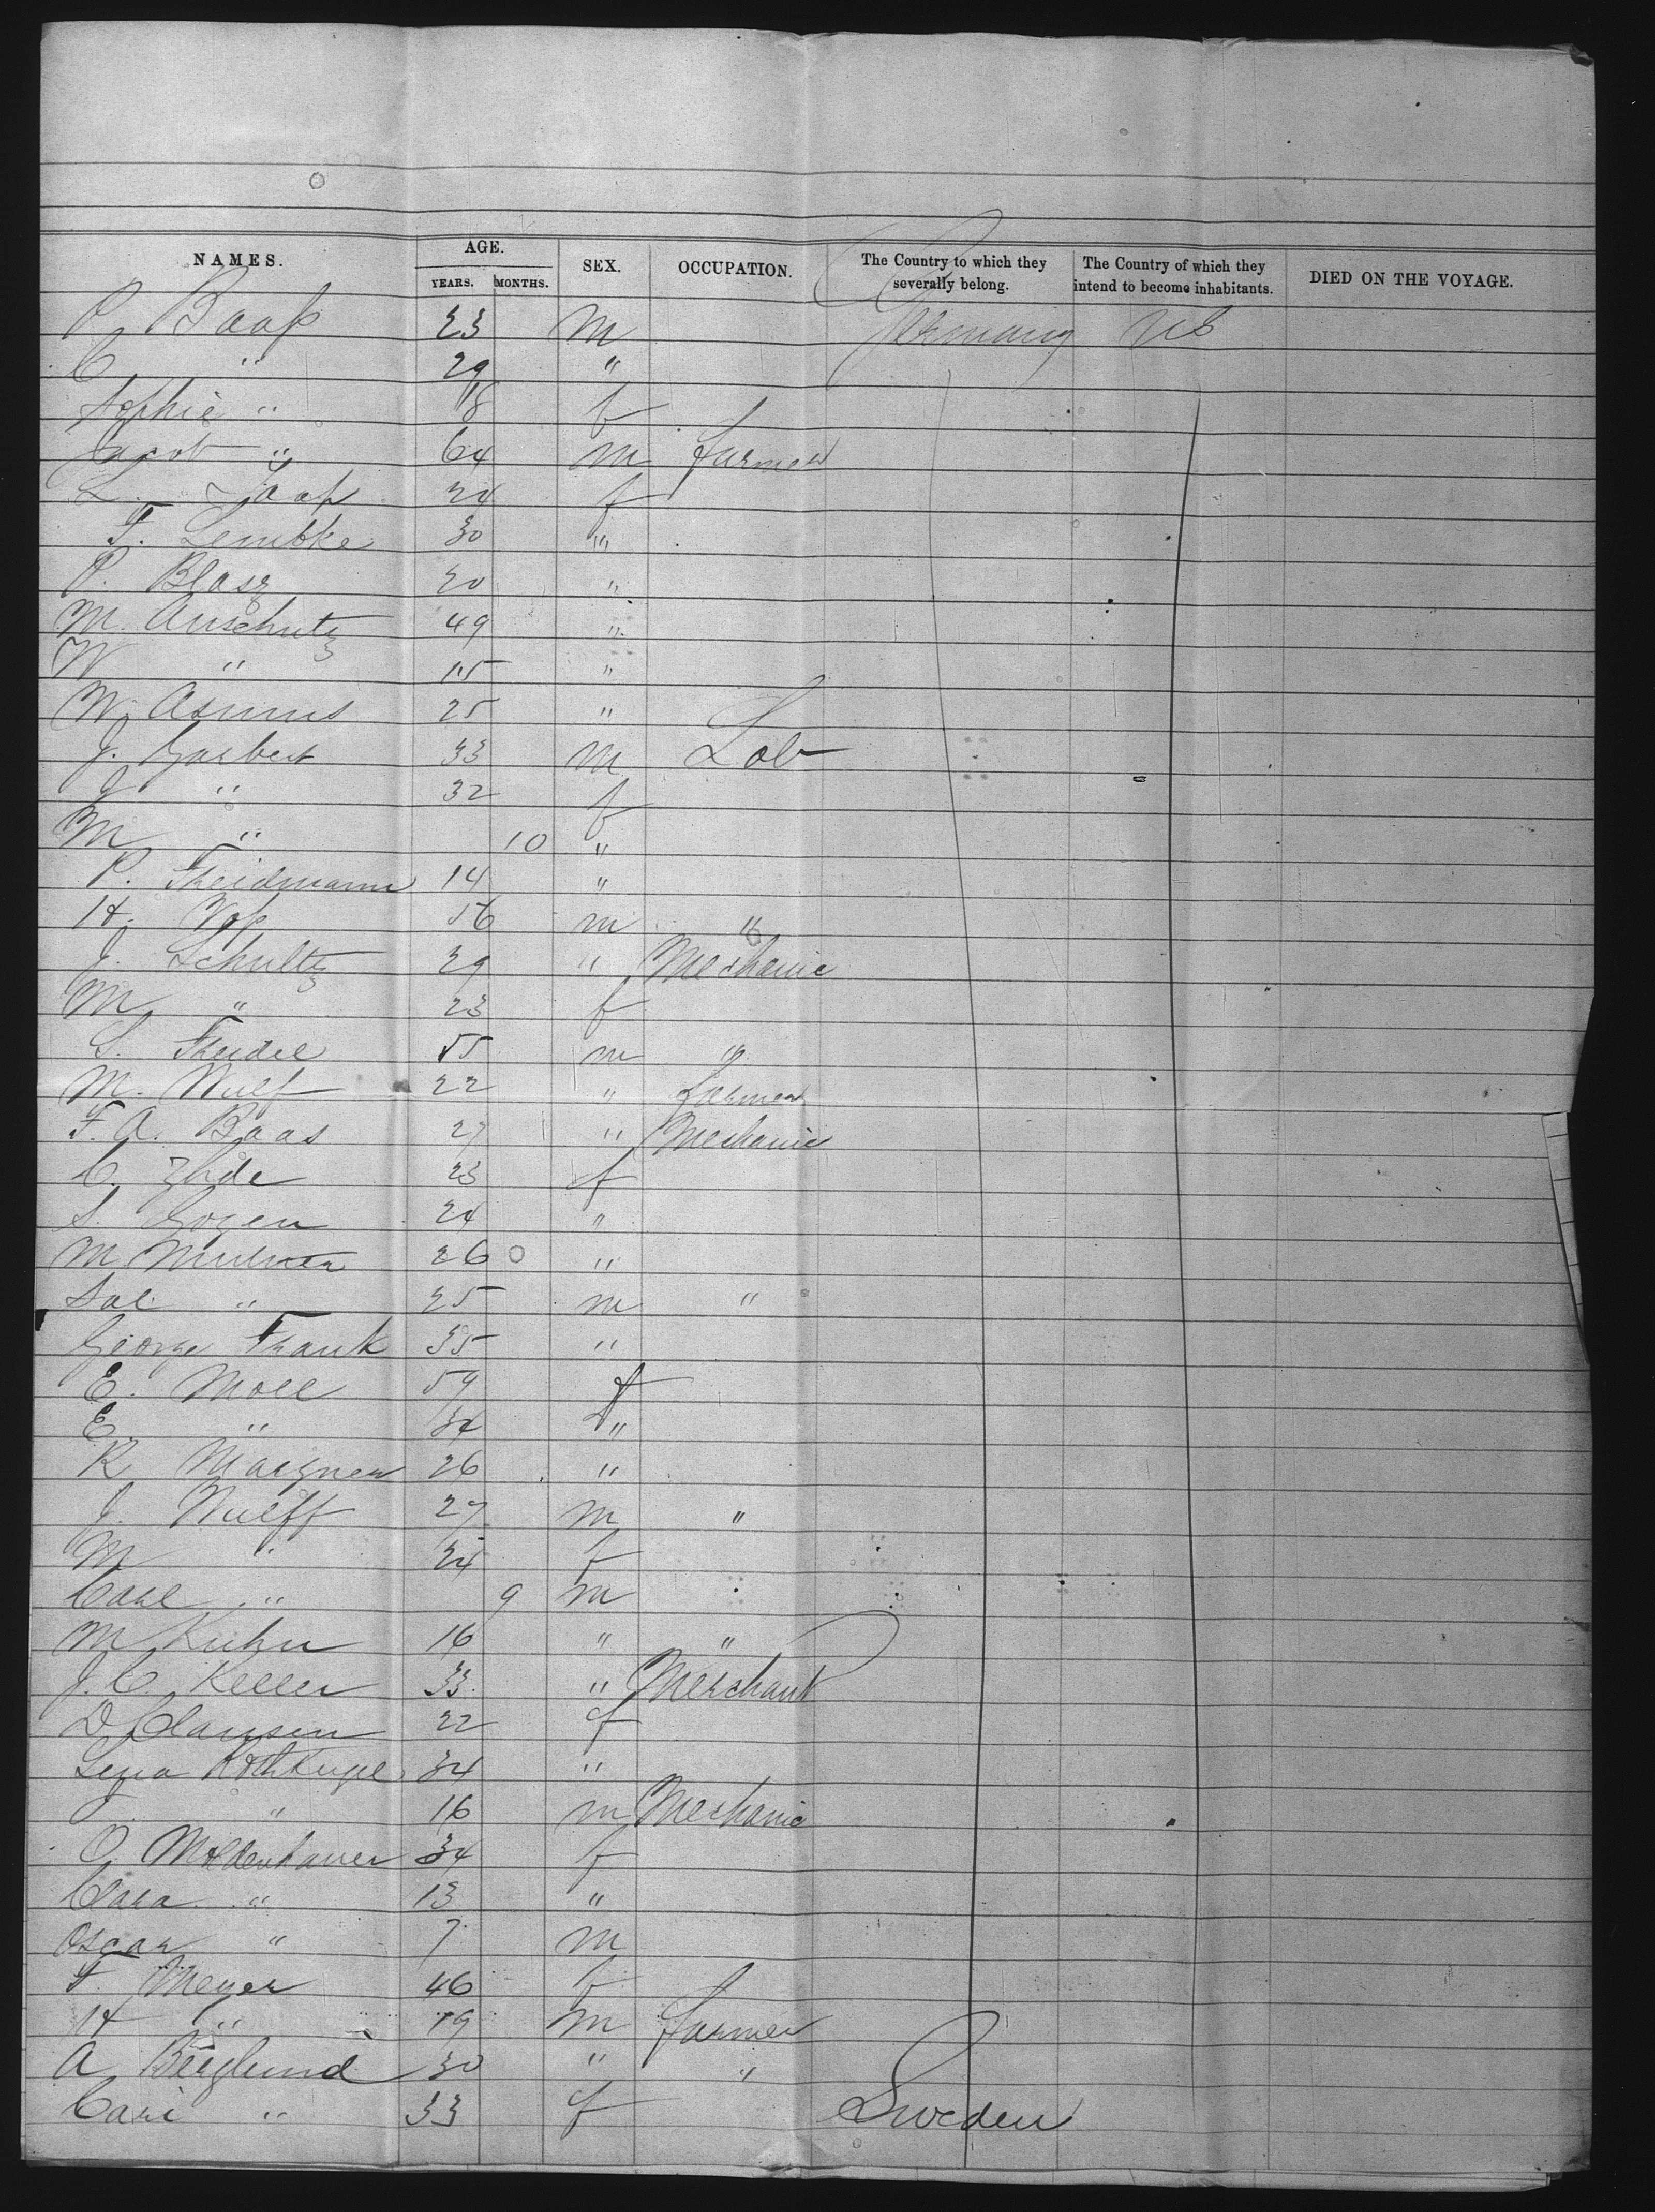 NAMES. AGE. YEARS. MONTHS. SEX. OCCUPATION. The Country to which they severally belong. The Country of which they intend to become inhabitants. DIED ON THE VOYAGE.
P. Baap 23 m Germany US
C " 29 "
Sophie " 18 f
Jacob " 64 m farmer
L. Jaap 24 f
F. Lembke 30 "
P. Blasz 20 "
M. Anschutz 49 "
W " 15 "
W. Asmus 25 "
J. Garbert 33 m Lab
J " 32 f
M " 10 "
P. Freidmann 14 "
H. Vop 56 m "
J. Schultz 29 " Mechanic
M " 23 f
S. Freidel 55 m "
M. Wulf 22 " Farmer
F. A. Baas 27 " Mechanic
C. 23 f
S. Gozen 24 "
M 26 "
Sal " 25 m "
George Frank 35 "
E. Moll 59 f
E " 34 "
R 26 "
J. Wulff 27 m "
M " 24 f
Carl " 9 m
M Kuhn 16 " "
J. C. Keller 33 " Merchant
D Clausen 22 f
Lena 34 "
J " 16 m Mechanic
O. Moldenhauer 34 f
Clara " 13 "
Oscar " 7 m
F Meyer 46 f
H " 19 m farmer
A Berglund 30 " "
Cari " 33 f Sweden